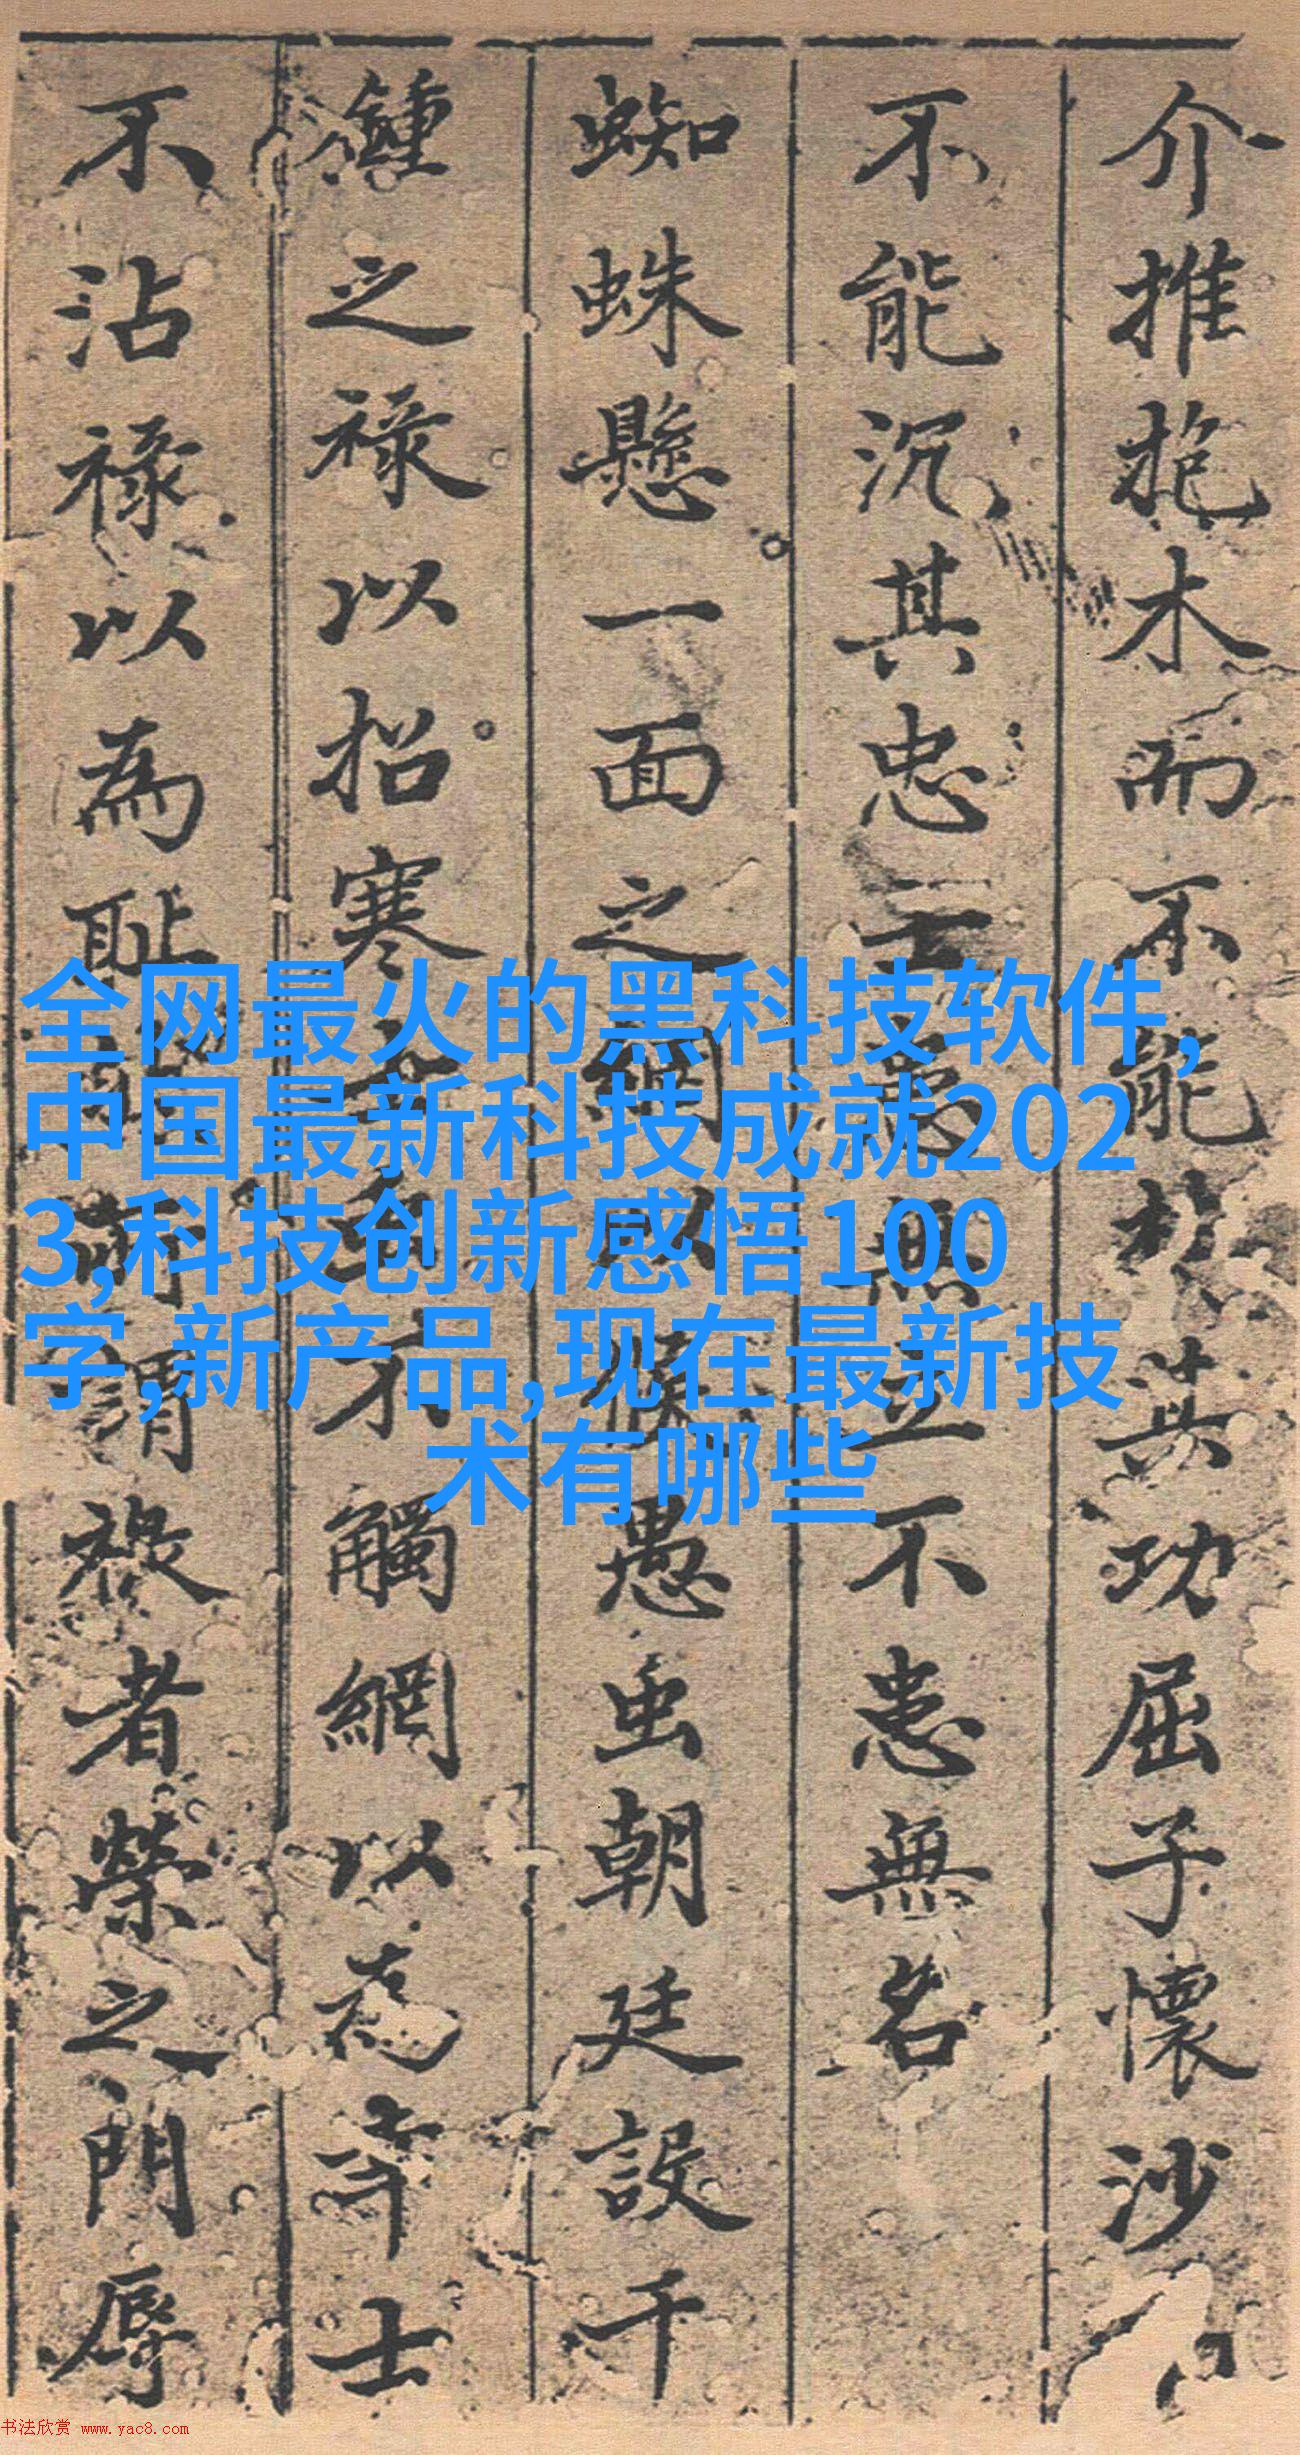 介推抱木而不能於共功屈子懷沙
不能沉其忠士患無立不患無名
蜘蛛懸一面之網以愚虫朝廷設千
鍾之祿以招寒觸網以為士
不沾祿以為恥謂祿者榮之門辱
全网最火的黑科技软件,
中国最新科技成就202
3,科技创新感悟100
字,新产品,现在最新技
术有哪些
书法欣赏 www.yac8.com